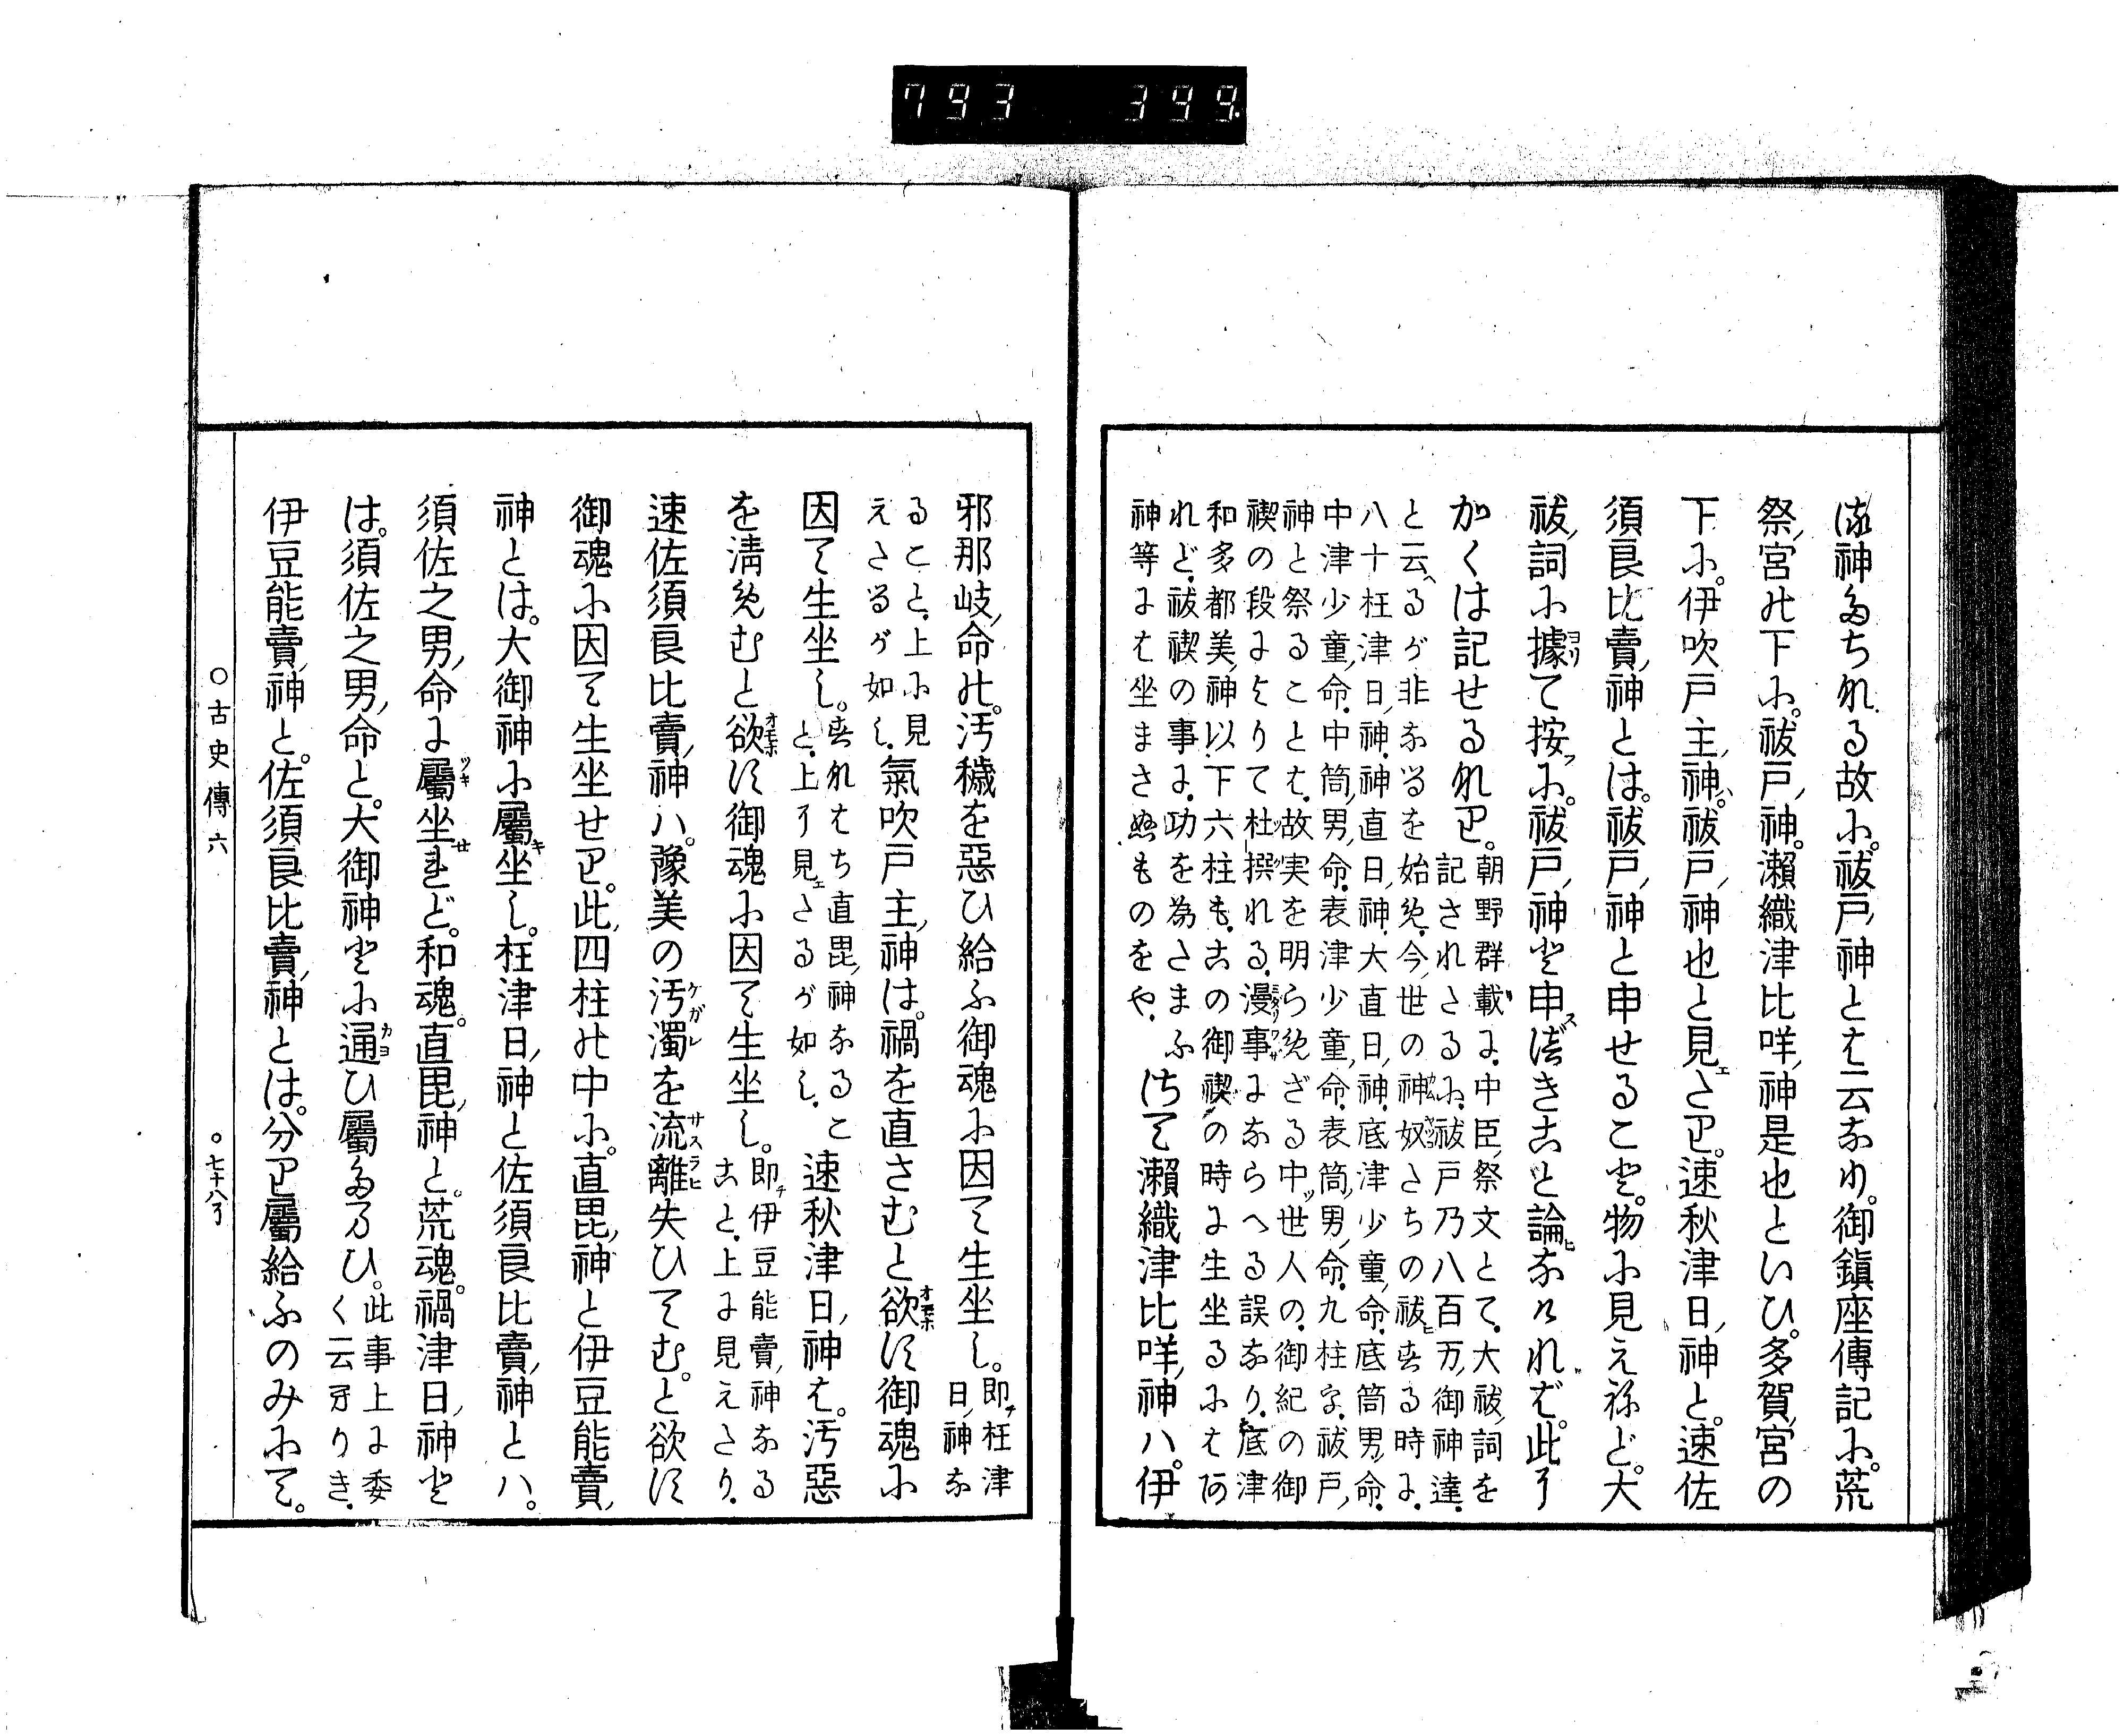 793 399
流神たちなる故に。祓戸神とは云なり。御鎭座傳記に。荒
祭宮の下に。祓戸神。瀬織津比咩神是也といひ。多賀宮の
下に。伊吹戸主神。祓戸神也と見えたり。速秋津日神と。速佐
須良比賣神とは。祓戸神と申せること。物に見えねど。大
祓詞に據て按に。祓戸神と申すべきこと論ひなければ。此に
かくは記せるなり。
朝野群載に。中臣祭文とて。大祓詞を
記されたるに。祓戸乃八百万御神達。
と云へるが非なるを始め。今世の神奴たちの祓ひする時に。
八十枉津日神。神直日神。大直日神。底津少童命。底筒男命。
中津少童命。中筒男命。表津少童命。表筒男命。九柱を。祓戸
神と祭ることは。故実を明らめざる中ツ世人の。御紀の御
禊の段によりて杜撰れる。漫事にならへる誤なり。底津
和多都美神以下六柱も。この御禊の時に生坐るにはあ
れど。祓禊の事に。功を為たまふ
神等には坐まさぬものをや。
さて瀬織津比咩神ハ。伊
邪那岐命の。汚穢を惡ひ給ふ御魂に因て生坐し。
即チ枉津
日神な
ること。上に見
えたるが如し。
氣吹戸主神は。禍を直さむと欲す御魂に
因て生坐し。
すなはち直毘神なるこ
と。上に見えたるが如し。
速秋津日神は。汚惡
を淸めむと欲す御魂に因て生坐し。
即チ伊豆能賣神なる
こと。上に見えたり。
速佐須良比賣神ハ。豫美の汚濁を流離失ひてむ。と欲す
御魂に因て生坐せり。此四柱の中に。直毘神と伊豆能賣
神とは。大御神に屬坐し。枉津日神と佐須良比賣神とハ。
須佐之男命に屬坐せれど。和魂。直毘神と。荒魂。禍津日神と
は。須佐之男命と。大御神とに通ひ屬たまひ。
此事上に委
く云へりき。
伊豆能賣神と。佐須良比賣神とは。分り屬給ふのみにて。
○古史傳六
○七十八